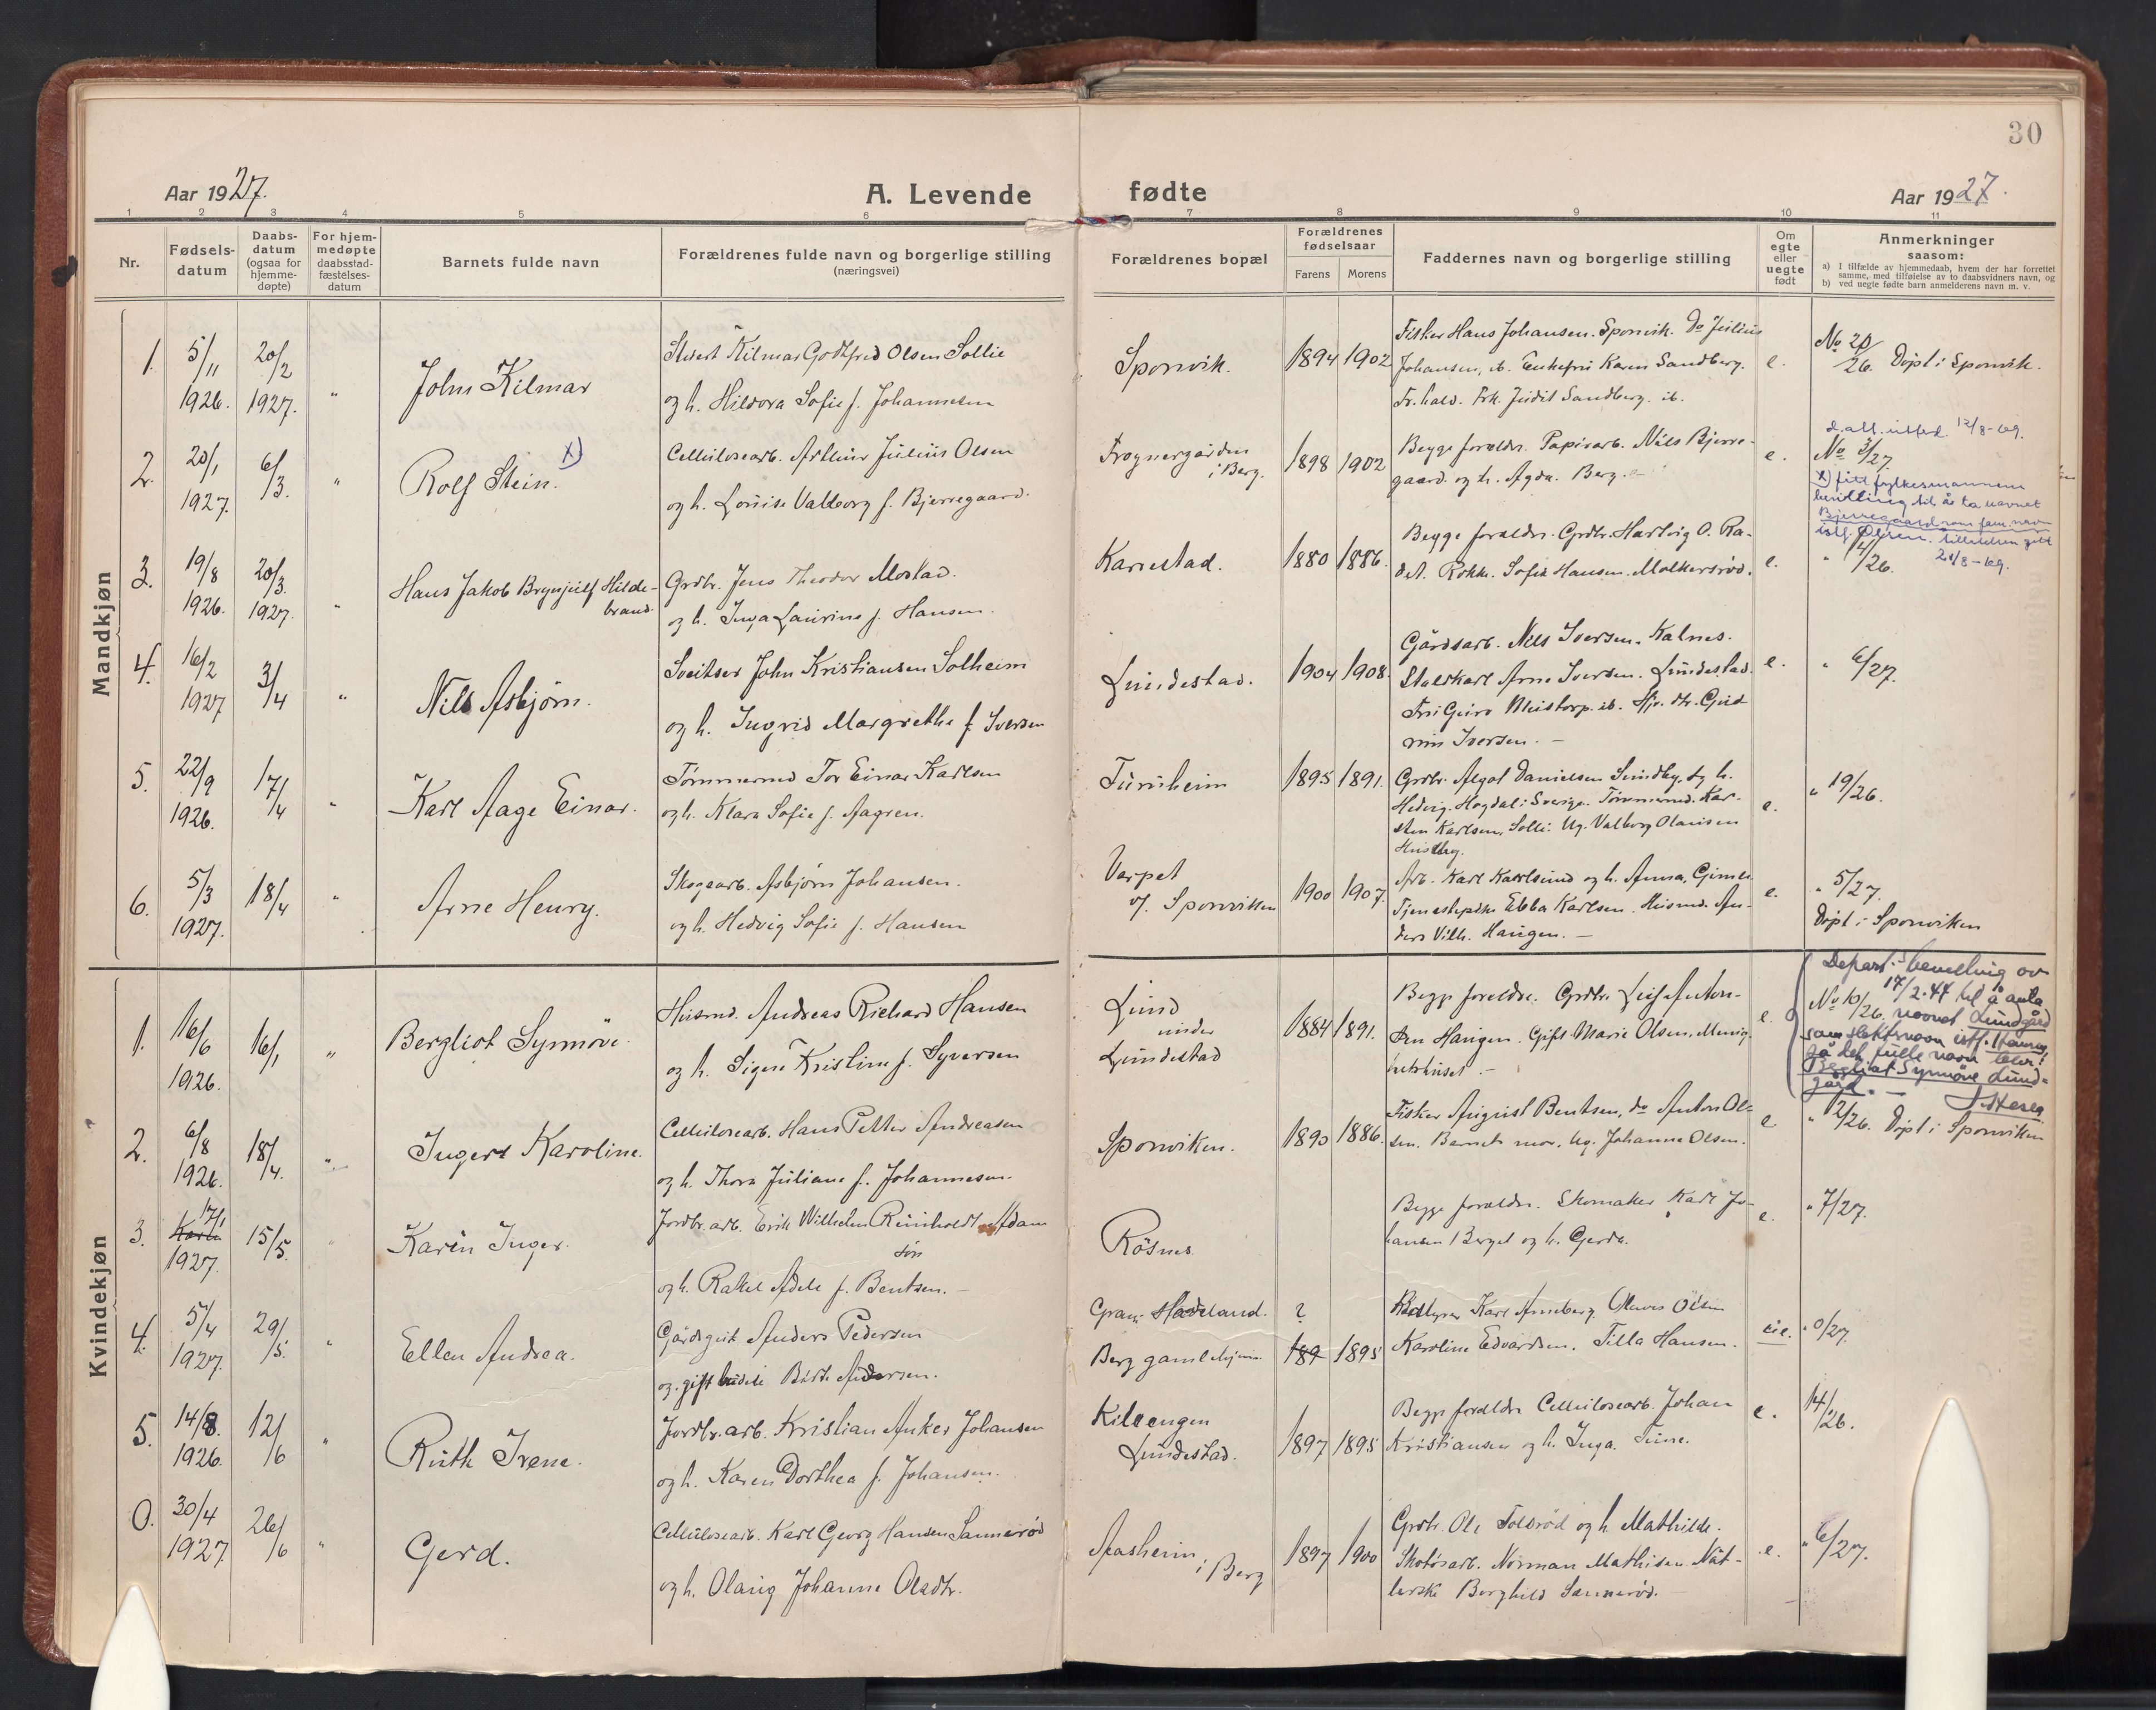 30
Aar 1927.
A. Levende
fødte
Aar 1927.
1 2 3 4 5 6 7 8 9 10 11
Nr.
Fødsels-
datum
Daabs-
datum
(ogsaa for
hjemme-
døpte)
For hjem-
medøpte
daabsstad-
fæstelses-
datum
Barnets fulde navn
Forældrenes fulde navn og borgerlige stilling
(næringsvei)
Forældrenes bopæl
Forældrenes
fødselsaar
Farens Morens
Faddernes navn og borgerlige stilling
Om
egte
eller
uegte
født
Anmerkninger
saasom:
a) I tilfælde av hjemmedaab, hvem der har forrettet
samme, med tilføielse av to daabsvidners navn, og
b) ved uegte fødte barn anmelderens navn m. v.
Mandkjøn
1.
5/11
1926.
20/2
1927.
"
John Kilmar
Kilmar Godtfred Olsen Sollie
og h. Hildora Sofie f. Johannesen
Sponvik.
1894 1902
Fisker Hans Johansen. Sponvik. Do Julius
Johansen, ib. Enkefru Karen Sandberg.
Fr.hald. Frk. Judit Sandberg. ib.
e.
No 20/26. Døpt i Sponvik.
2.
20/1
1927.
6/3.
"
Rolf Stein. x)
Cellulosearb. Arthur Julius Olsen
og h. Louise Valborg f. Bjerregaard.
Frognergården
i Berg.
1898 1902
Begge foreldre. Papirarb. Nils Bjerre-
gaard. og h. Agda. Berg.
e.
d. att. utsted. 12/8-69.
No 3/27.
x) fitt fylkesmannens
bevilling til å ta navnet
Bjerregaard som fam.navn
istf. Olsen. tillatelsen gitt
20/8-69.
3.
19/8
1926.
20/3.
1927.
"
Hans Jakob Brynjulf Hilde-
brand.
Grdbr. Jens Theodor Mostad.
og h. Inga Laurine f. Hansen.
Karrestad.
1880 1886.
Begge foreldre. Grdbr. Hartvig O. Ra-
det. Rokke. Sofie Hansen. Molkersrød.
e.
" 4/26.
4.
16/2
1927
3/4
"
Nils Asbjørn.
Sveitser John Kristiansen Solheim
og h. Ingrid Margrethe f. Iversen
Lundestad.
1904 1908.
Gårdsarb. Nils Iversen. Kalnes.
Stallkarl Arne Iversen. Lundestad.
ib. Hjv. dtr. Gud
run Iversen. –
e.
" 6/27.
5.
22/9
1926.
17/4
"
Karl Aage Einar.
Tømmermd Tor Einar Karlsen
og h. Klara Sofie f. Aagren.
Furuheim
1895 1891.
Grdbr. Algot Danielsen Sundby, og h.
Hedvig. Hogdal i Sverige. Tømmermd. Kar-
sten Karlsen, Solli. Ug. Valborg Olausen
e.
" 19/26.
6.
5/3
1927.
18/4
"
Arne Henry.
Skogsarb. Asbjørn Johansen.
og h. Hedvig Sofie f. Hansen
Varpet
v/ Sponviken
1900 1907.
Arb. Karl Karlsund og h. Anna, Gimle
Tjenestepike Ebba Karlsen. Husmd. An-
ders Vilh. Haugen. –
e.
" 5/27.
Døpt i Sponviken
Kvindekjøn
1.
16/6
1926.
16/1
"
Bergliot Synnøve.
Husmd. Andreas Richard Hansen
og h. Signe Kristine f. Syversen
Lund
under
Lundestad
1884 1891.
Begge foreldre. Grdbr. Leif Anton-
sen Haugen. Gift Marie Olsen,
e.
Depart.s bevilling av
17/2.44 til å anta
No 10/26. navnet Lundgård
som slektsnavn istf. Hansen
så det fulle navn blir:
Bergliot Synnøve Lund-
gård. –
2.
6/8
1926.
18/4.
"
Ingerd Karoline.
Cellulosearb. Hans Petter Andreasen
og h. Thora Juliane f. Johannesen.
Sponviken.
1890 1886.
Fisker August Bentsen, do Anton Ol-
sen. Barnets mor. Ug. Johanne Olsen.
e.
" 12/26. Døpt i Sponviken
3.
17/1
1927.
15/5.
"
Karin Inger.
Jordbr.arb. Erik Wilhelm Reinholdt Adam
son
og h. Rakel Adele f. Bentsen. –
Røsnes
Begge foreldre. Skomaker Karl Jo-
hansen Berget og h. Gerda.
e.
" 7/27.
4.
5/4
1927.
29/5.
"
Ellen Andrea.
Gårdsgut Anders Pedersen
og gift budeie Berte Andersen.
Gran: Hadeland.
Berg gamlehjem.
?
189 1895
Karl Anneberg. Olaves Olsen
Karoline Edvardsen. Tilla Hansen.
ue.
" 0/27.
5.
14/8.
1926.
12/6
"
Ruth Irene.
Jordbr.arb. Kristian Anker Johansen
og h. Karen Dorthea f. Johansen.
Kileengen
Lundestad.
1897 1895
Begge foreldre Cellulosearb. Johan
Kristiansen og h. Inga. Tune.
e.
14/26.
0.
30/4
1927
26/6
"
Gerd.
Cellulosearb. Karl Georg Hansen Sannerød
og h. Olaug Johanne Olsdtr.
Aasheim
i Berg
1897 1900
Grdbr. Ole Solerød og h. Mathilde.
Skotøiarb. Norman Mathisen. Nåt-
lerske Borghild Sannerød. –
e.
" 6/27.